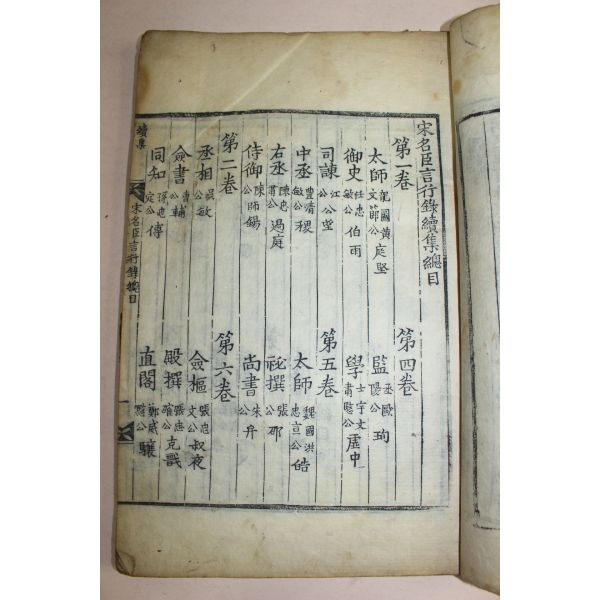 宋名臣言行錄續集總目
第一卷 第四卷
太師龍國黃文節公庭堅 監丞歐陽公珣
御史任忠敏公伯雨 學士宇文肅愍公虛中
司諫江公公望 第五卷
中丞豐清敏公稷 太師魏國洪忠宣公皓
右丞陳忠肅公過庭 祕撰張公邵
侍御陳公師錫 尚書朱公弁
第二卷 第六卷
丞相吳公敏 僉樞張忠文公叔夜
僉書曹公輔 殿撰張忠確公克戩
同知孫忠定公傅 直閣鄭威愍公驤
續集
宋名臣言行錄總目
一